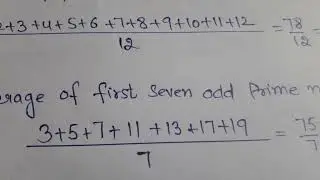 2+3+4+5+6+7+8+9+10+11+12 = 78
12 12 =
erage of first seven odd prime n
3+5+7+11+13+17+19 = 75
7 7